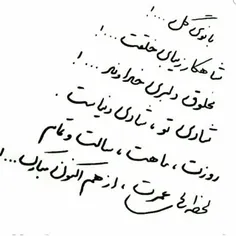 بانوی گل ....!
شاهکار زیبای خلقت ...!
مخلوق دلبری خداوند ....!
شادی تو ، شادی دنیاست .
روزت ، ماهت ، سالت و تمام
لحظه های عمرت ، از هم اکنون مبارک ...!